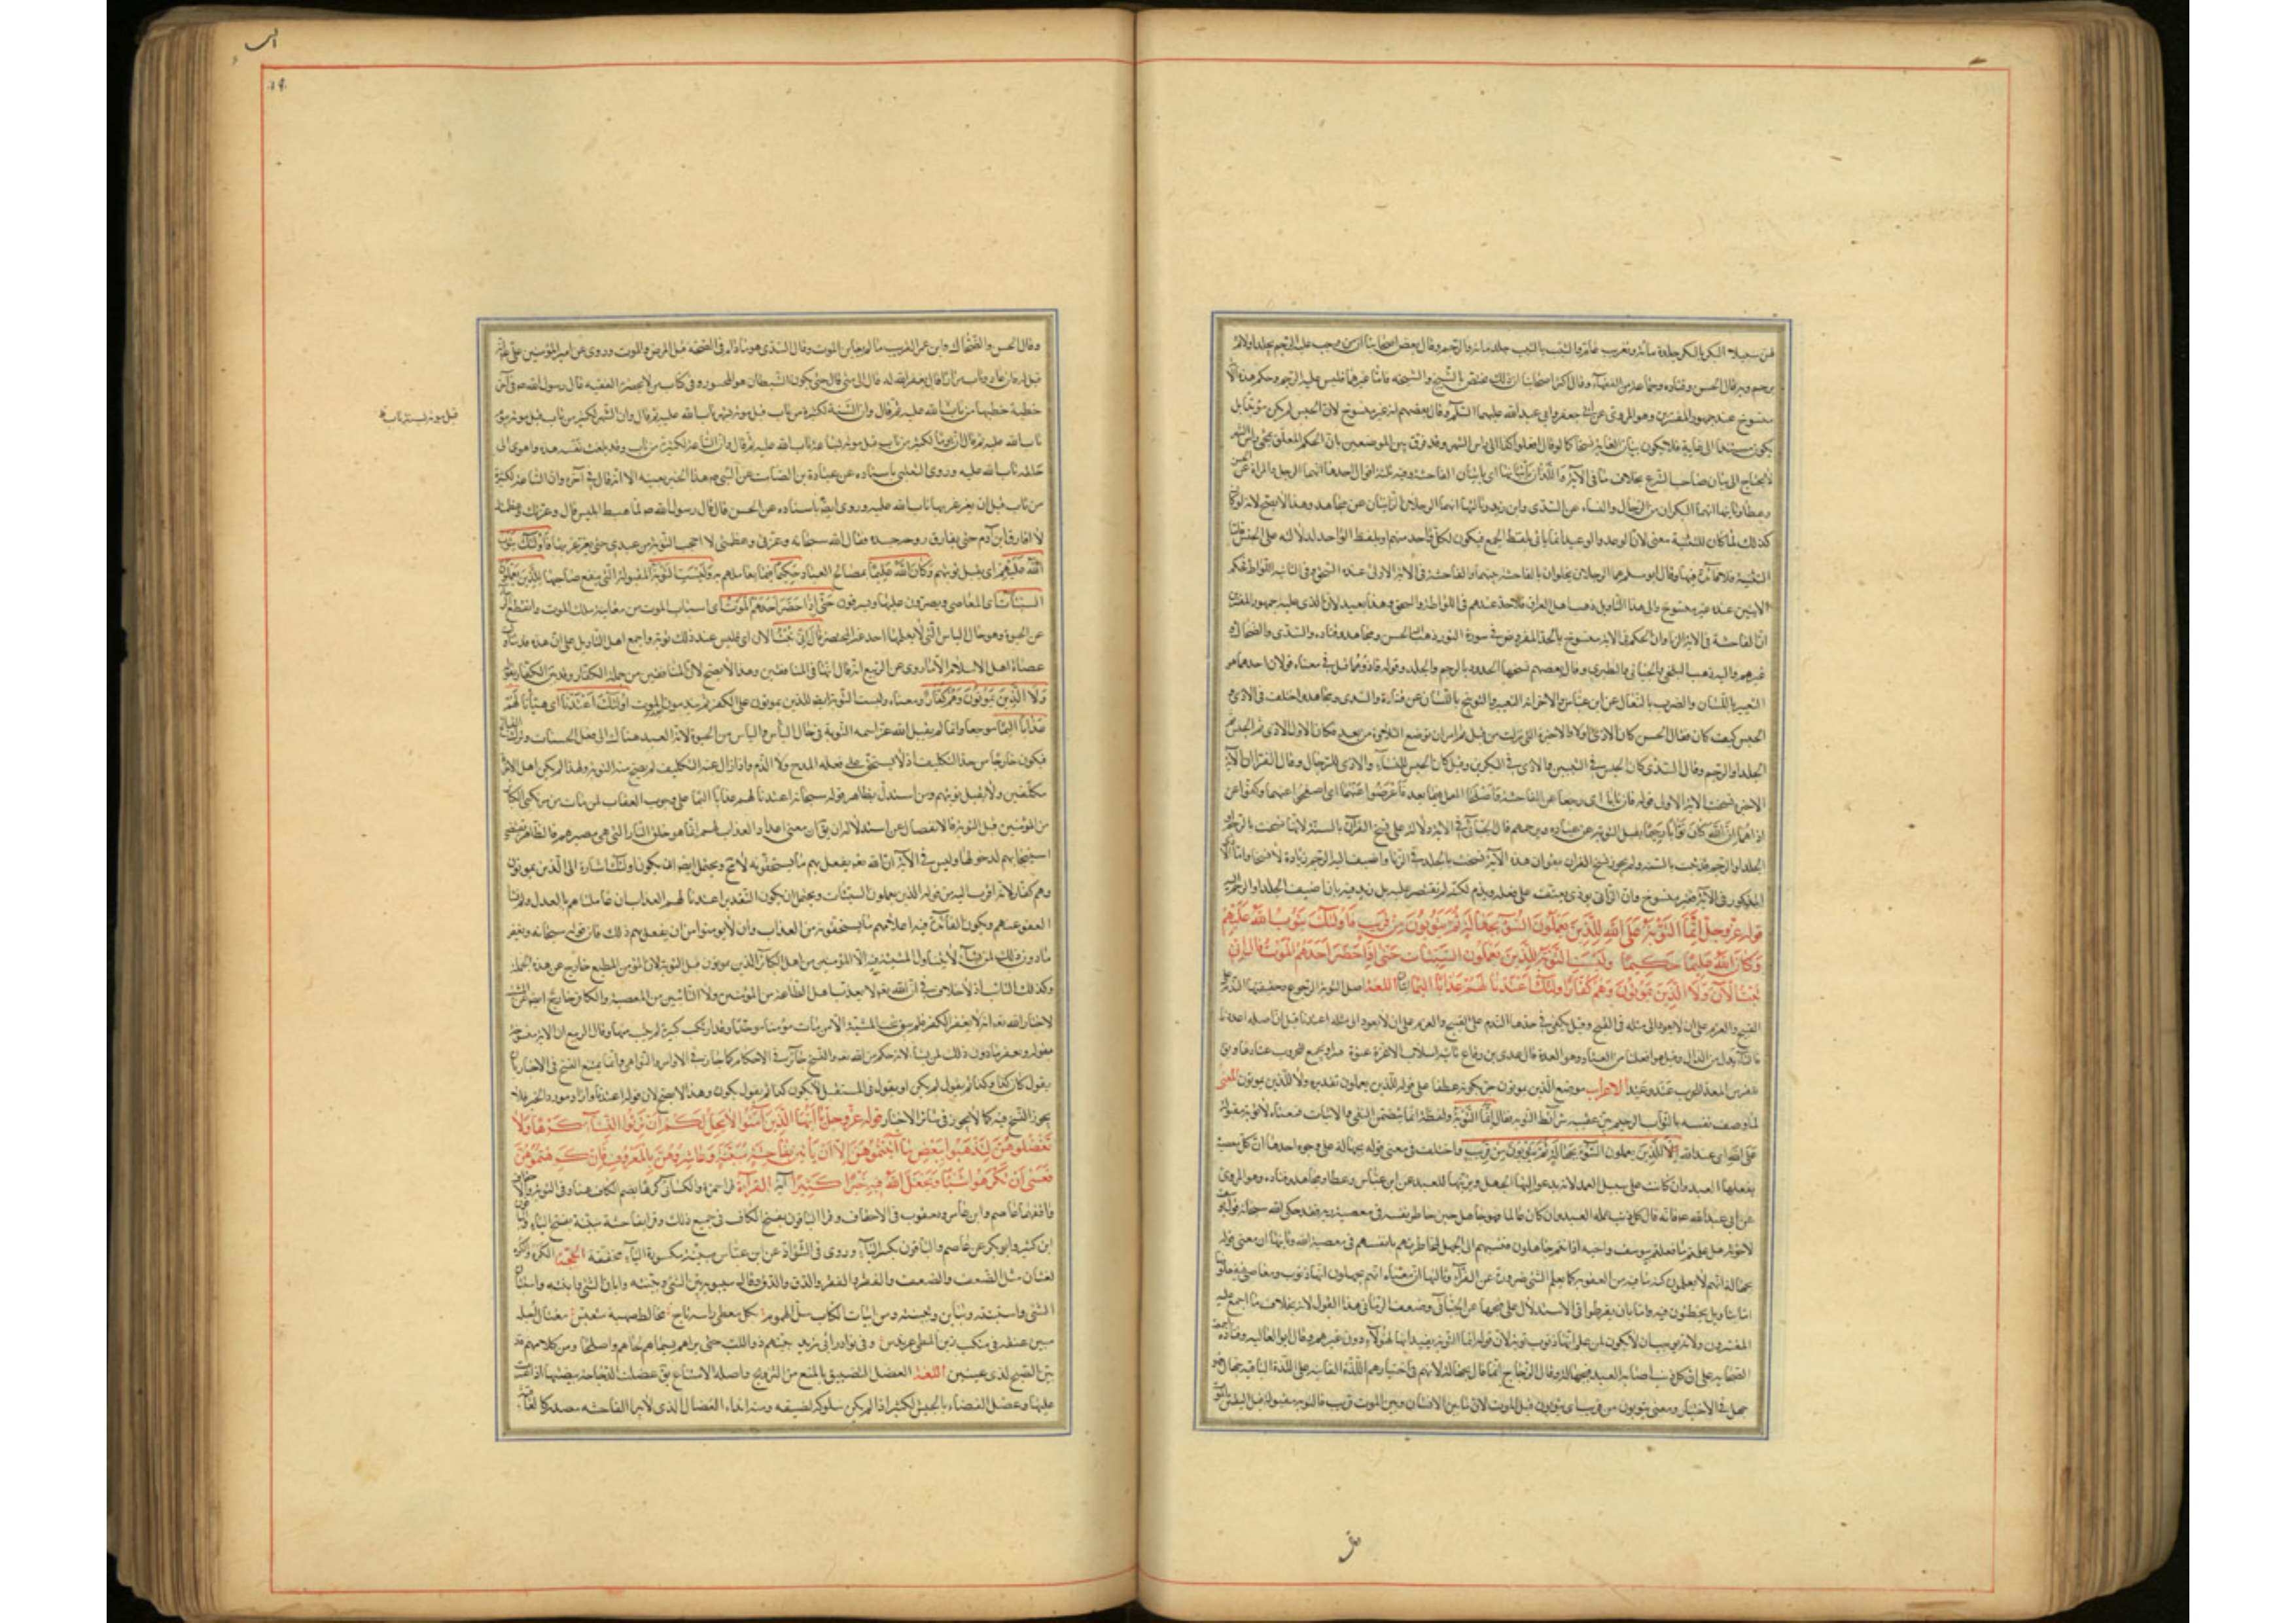 لهن سبيلا البكر بالبكر جلد مائة وتغريب عام والثيب بالثيب جلد مائة والرجم وقال بعض اصحابنا ان من وجب عليه الرجم يجلد اولا ثم
يرجم وبه قال الحسن وقتادة وجماعة من الفقهاء وقال اكثر اصحابنا ان ذلك يختص بالشيخ والشيخة فاما غيرهما فليس عليه الرجم وحكم هذه الآية
منسوخ عند جمهور المفسرين وهو المروي عن ابي جعفر وابي عبد الله عليهما السلام وقال بعضهم انه غير منسوخ لان الحبس لم يكن مؤبدا بل
يكون مستندا الى غاية فلا يكون بيان الغاية نسخا كما لو قال افعلوا كذا الى رأس الشهر وقد فرق بين الموضعين بان الحكم المعلق بمجيء رأس الشهر
لا يحتاج الى بيان صاحب الشرع بخلاف ما في الآية واللذان يأتيانها اي يأتيان الفاحشة وفيه ثلثة اقوال احدها انهما الرجل والمرأة عن الحسن
وعطا وثانيها انهما البكران من الرجال والنساء عن السدي وابن زيد وثالثها انهما الرجلان الزانيان عن مجاهد وهذا لا يصح لانه لو كان
كذلك لما كان للتثنية معنى لان الوعد والوعيد انما يأتي بلفظ الجمع فيكون لكل واحد منهم او بلفظ الواحد لدلالته على الجنس فاما
التثنية فلا فائدة فيها وقال ابو مسلم هما الرجلان يخلوان بالفاحشة بينهما والفاحشة في الآية الاولى عنده السحق وفي الثانية اللواط فحكم
الآيتين عنده غير منسوخ والى هذا التأويل ذهب اهل العراق فلا حد عندهم في اللواط والسحق وهذا بعيد لان الذي عليه جمهور المفسرين
ان الفاحشة في الآية الزنا وان الحكم في الآية منسوخ بالحد المفروض في سورة النور ذهب اليه الحسن ومجاهد وقتادة والسدي والضحاك و
غيرهم واليه ذهب البلخي والجبائي والطبري وقال بعضهم نسخها الحدود بالرجم والجلد وقوله فآذوهما قيل في معناه قولان احدهما هو
التعيير باللسان والضرب بالنعال عن ابن عباس والاخر انه التعيير والتوبيخ باللسان عن قتادة والسدي ومجاهد واختلف في الاذى و
الحبس كيف كان فقال الحسن كان الاذى اولا والآية الاخيرة نزلت من قبل ثم امر ان توضع التلاوة من بعد فكان الاول الاذى ثم الحبس ثم
الجلد او الرجم وقال السدي كان الحبس في الثيبين والاذى في البكرين وقيل كان الحبس للنساء والاذى للرجال وقال الفراء ان الآية
الاخيرة نسخت الآية الاولى قوله فان تابا اي رجعا عن الفاحشة واصلحا العمل فيما بعد فاعرضوا عنهما اي اصفحوا عنهما وكفوا عن
اذاهما ان الله كان توابا رحيما يقبل التوبة عن عباده ويرحمهم قال الجبائي في الآية دلالة على نسخ القرآن بالسنة لانها نسخت بالرجم او
الجلد والرجم ثبت بالسنة ومن لم يجوز نسخ القرآن يقول ان هذه الآية نسخت بالجلد في الزنا واضيف اليه الرجم زيادة لا نسخا واما الاذى
المذكور في الآية فغير منسوخ فان الزاني يوذى ويعنف على فعله ويذم لكنه لم يقتصر عليه بل زيد فيه بان اضيف الجلد او الرجم اليه
قوله عز وجل انما التوبة على الله للذين يعملون السوء بجهالة ثم يتوبون من قريب فاولئك يتوب الله عليهم
وكان الله عليما حكيما وليست التوبة للذين يعملون السيئات حتى اذا حضر احدهم الموت قال اني
تبت الآن ولا الذين يموتون وهم كفار اولئك اعتدنا لهم عذابا اليما آيتان اللغة اصل التوبة الرجوع وحقيقتها الندم على
القبيح والعزم على ان لا يعود الى مثله في القبح وقيل يكفي في حدها الندم على القبيح والعزم على ان لا يعود الى مثله اعتدنا قيل ان اصله اعددنا
لما وصف نفسه بالتواب الرحيم بين عقيبه شرائط التوبة فقال انما التوبة ولفظة انما يتضمن النفي والاثبات فمعناه لا توبة مقبولة
على الله اي عند الله الا للذين يعملون السوء بجهالة ثم يتوبون من قريب واختلف في معنى قوله بجهالة على وجوه احدها ان كل معصية
يفعلها العبد وان كانت على سبيل العمد لانه يدعو اليها الجهل ويزينها للعبد عن ابن عباس وعطا ومجاهد وقتادة وهو المروي
عن ابي عبد الله ع فانه قال كل ذنب عمله العبد وان كان عالما فهو جاهل حين خاطر بنفسه في معصية ربه فقد حكى الله سبحانه قول يوسف
لاخوته هل علمتم ما فعلتم بيوسف واخيه اذ انتم جاهلون فنسبهم الى الجهل لمخاطرتهم بانفسهم في معصية الله وثانيها ان معنى قوله
بجهالة انهم لا يعلمون كنه ما فيه من العقوبة كما يعلم الشيء ضرورة عن الفراء وثالثها ان معناه انهم يجهلون انها ذنوب ومعاصي فيفعلونها
اما بتاويل يخطئون فيه واما بان يفرطوا في الاستدلال على قبحها عن الجبائي وضعف الرماني هذا القول لانه بخلاف ما اجمع عليه
المفسرون ولانه يوجب ان لا يكون لمن علم انها ذنوب توبة لان قوله انما التوبة يفيد انها لهؤلاء دون غيرهم وقال ابو العالية وقتادة اجمعت
الصحابة على ان كل ذنب اصابه العبد فبجهالة وقال الزجاج انما قال بجهالة لانهم في اختيارهم اللذة الفانية على اللذة الباقية جهال فهو
جهل في الاختيار ومعنى يتوبون من قريب اي يتوبون قبل الموت لان ما بين الانسان وبين الموت قريب فالتوبة مقبولة قبل اليقين بالموت
وقال الحسن والضحاك وابن عمر القريب ما لم يعاين الموت وقال السدي هو ما دام في الصحة قبل المرض والموت وروي عن امير المؤمنين علي انه
قيل له فان عاد وتاب مرارا قال يغفر الله له قال الى متى قال حتى يكون الشيطان هو المحسور وفي كتاب من لا يحضره الفقيه قال رسول الله ص في آخر
خطبة خطبها من تاب قبل موته بسنة تاب الله عليه ثم قال وان السنة لكثيرة من تاب قبل موته بشهر تاب الله عليه ثم قال وان الشهر لكثير من تاب قبل موته بيوم
تاب الله عليه ثم قال وان يوما لكثير من تاب قبل موته بساعة تاب الله عليه ثم قال وان الساعة لكثيرة من تاب وقد بلغت نفسه هذه واهوى الى
حلقه تاب الله عليه وروى الثعلبي باسناده عن عبادة بن الصامت عن النبي ص هذا الخبر بعينه الا انه قال في آخره وان الساعة لكثيرة
من تاب قبل ان يغرغر بها تاب الله عليه وروى ايضا باسناده عن الحسن قال قال رسول الله ص لما هبط ابليس قال وعزتك وعظمتك
لا افارق ابن آدم حتى يفارق روحه جسده فقال الله سبحانه وعزتي وعظمتي لا احجب التوبة من عبدي حتى يغرغر بها فاولئك يتوب
الله عليهم اي يقبل توبتهم وكان الله عليما بمصالح العباد حكيما فيما يعاملهم به وليست التوبة المقبولة التي ينفع صاحبها للذين يعملون
السيئات اي المعاصي ويصرون عليها ويسوفون حتى اذا حضر احدهم الموت اي اسباب الموت من معاينة ملك الموت وانقطع الرجاء
عن الحيوة وهو حال اليأس التي لا يعلمها احد غير المحتضر قال اني تبت الآن اي فليس عند ذلك توبة واجمع اهل التأويل على ان هذه قد تناولت
عصاة اهل الاسلام الا ما روي عن الربيع انه قال انها في المنافقين وهذا لا يصح لان المنافقين من جملة الكفار وقد بين الكفار بقوله
ولا الذين يموتون وهم كفار ومعناه وليست التوبة ايضا للذين يموتون على الكفر ثم يندمون بعد الموت اولئك اعتدنا اي هيأنا لهم
عذابا اليما موجعا وانما لم يقبل الله عز اسمه التوبة في حال اليأس واليأس من الحيوة لانه يكون العبد هناك ملجأ الى فعل الحسنات وترك القبائح
فيكون خارجا من حد التكليف اذ لا يستحق على فعله المدح ولا الذم واذا زال عنه التكليف لم يصح منه التوبة ولهذا لم يكن اهل الآخرة
مكلفين ولا يقبل توبتهم ومن استدل بظاهر قوله سبحانه اعتدنا لهم عذابا اليما على وجوب العقاب لمن مات من مرتكبي الكبائر
من المؤمنين قبل التوبة فالانفصال عن استدلاله ان يقال ان معنى اعداد العذاب لهم انما هو خلق النار التي هي مصيرهم فالظاهر يقتضي
استيجابهم لدخولها وليس في الآية ان الله تعالى يفعل بهم ما يستحقونه لا محالة ويحتمل ايضا ان يكون اولئك اشارة الى الذين يموتون
وهم كفار لانه اقرب اليه من قوله الذين يعملون السيئات ويحتمل ان يكون التقدير اعتدنا لهم العذاب ان عاملناهم بالعدل ولم نشأ
العفو عنهم ويكون الفائدة فيه اعلامهم ما يستحقونه من العذاب وان لا يومنوا من ان يفعل بهم ذلك فان قوله سبحانه ويغفر
ما دون ذلك لمن يشاء لا يتناول المشيئة فيه الا المؤمنين من اهل الكبائر الذين يموتون قبل التوبة لان المؤمن المطيع خارج عن هذه الجملة
وكذلك التائب اذ لا خلاف في ان الله تعالى لا يعذب اهل الطاعة من المؤمنين ولا التائبين من المعصية والكافر خارج ايضا عن المشية
لاخبار الله تعالى انه لا يغفر الكفر فلم يبق تحت المشية الا من مات مؤمنا موحدا وقد ارتكب كبيرة لم يتب منها وقال الربيع ان الآية منسوخة
بقوله ويغفر ما دون ذلك لمن يشاء لانه حكم من الله تعالى والنسخ جائز في الاحكام كما جاز في الاوامر والنواهي وانما يمتنع النسخ في الاخبار بان
يقول كان كذا وكذا ثم يقول لم يكن او يقول في المستقبل لا يكون كذا ثم يقول يكون وهذا لا يصح لان قوله اعتدنا وارد مورد الخبر فلا
يجوز النسخ فيه كما لا يجوز في سائر الاخبار قوله عز وجل يا ايها الذين آمنوا لا يحل لكم ان ترثوا النساء كرها ولا
تعضلوهن لتذهبوا ببعض ما آتيتموهن الا ان يأتين بفاحشة مبينة وعاشروهن بالمعروف فان كرهتموهن
فعسى ان تكرهوا شيئا ويجعل الله فيه خيرا كثيرا آية القراءة قرأ حمزة والكسائي كرها بضم الكاف هنا وفي التوبة والاحقاف
وافقهما عاصم وابن عامر ويعقوب في الاحقاف وقرأ الباقون بفتح الكاف في جميع ذلك وقرأ بفاحشة مبينة بفتح الياء
ابن كثير وابو بكر عن عاصم والباقون بكسر الياء وروي في الشواذ عن ابن عباس مبينة مكسورة الباء مخففة الحجة الكره والكره
لغتان مثل الضعف والضعف والفقر والفقر والدف والدف وقال سيبويه بين الشيء وبينته وابان الشيء وابنته واستبان
الشيء واستبنته وتبين وتبينته ومن ابيات الكتاب سل الهموم بكل معطي رأسه ناج مخالط صهبة متعيس
بين الصبح لذي عينين اللغة العضل التضييق بالمنع من التزويج واصله الامتناع يق عضلت الدجاجة ببيضتها اذا
عليها وعضل الفضاء بالجيش الكثير اذا لم يكن سلوكه لضيقه ومنه الداء العضال الذي لا يبرأ الفاحشة مصدر كالعافية
قبل موته بسنة تاب